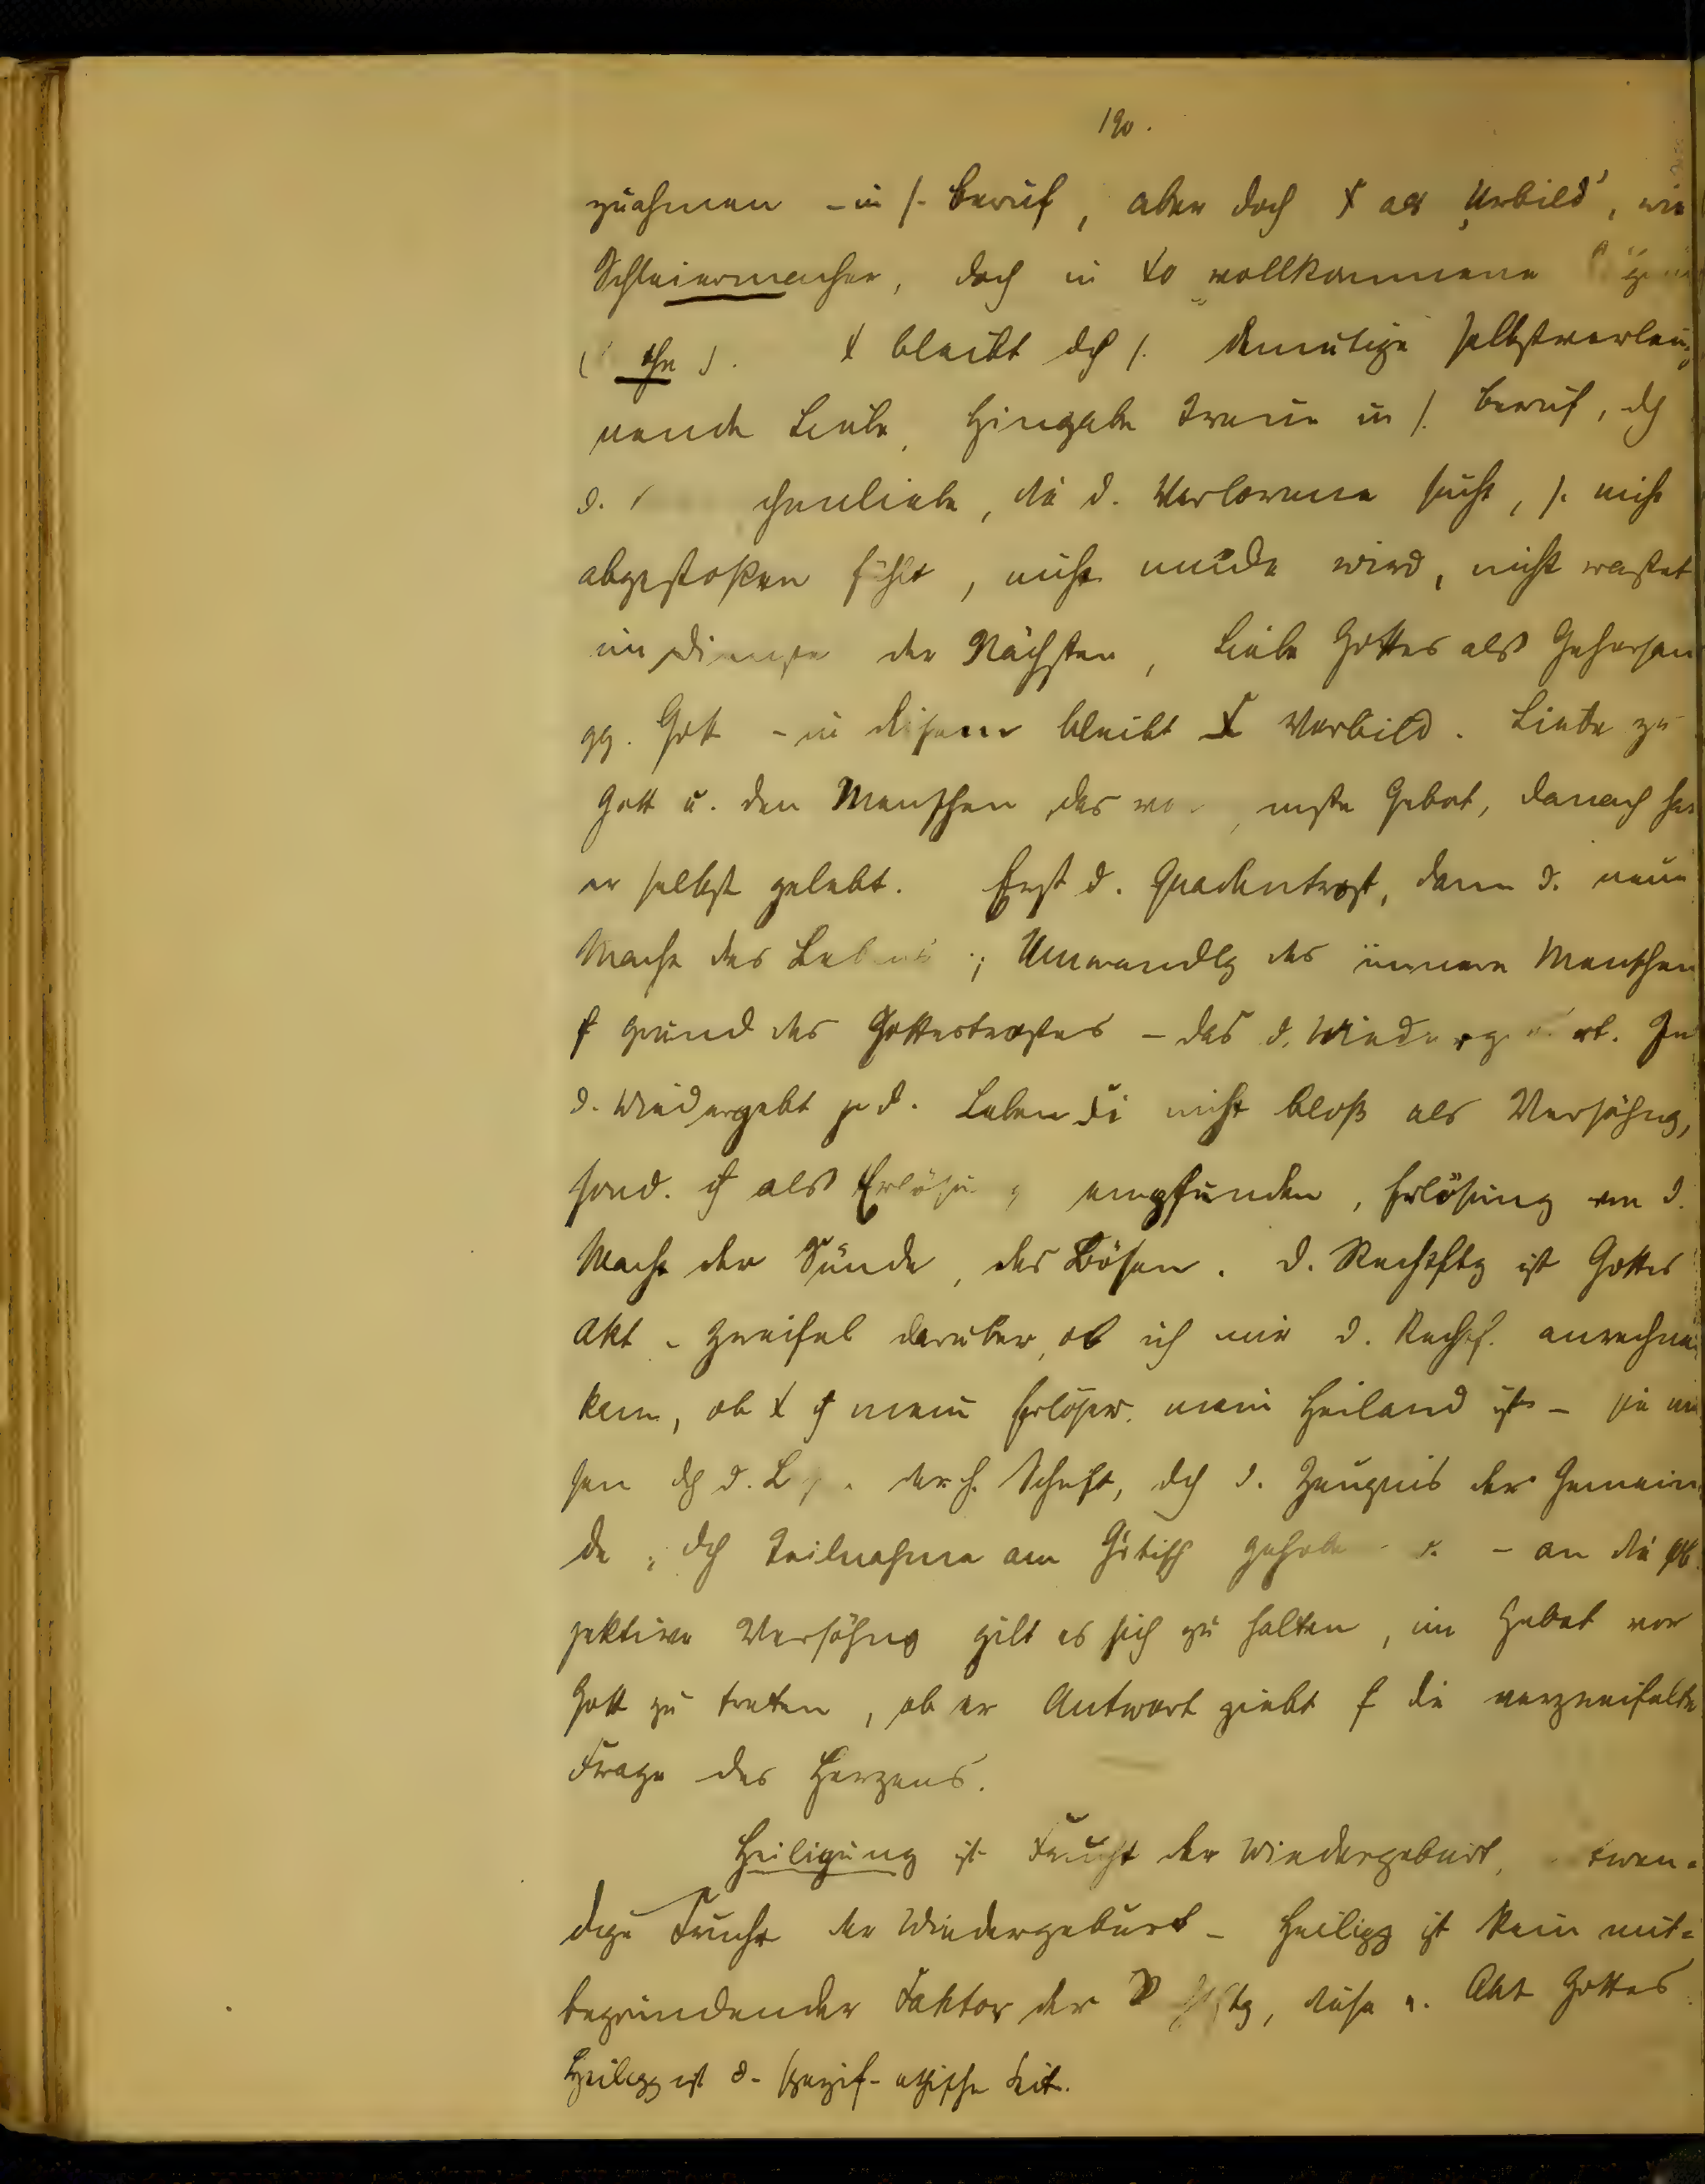 190.
zuahmen - in s. Beruf, aber doch X als „Urbild", wie
Schleiermacher, doch in Xo vollkommene
X bleibt dch s. demütige selbstverleug
nende Liebe, Hingabe Treue in s. Beruf, dch
d. chenliebe, die d. Verlorene sucht, s. nicht
abgestoßen fühlt, nicht müde wird, nicht rastet
im Dienste der Nächsten, Liebe Gottes als Gehorsam
gg. Gott - in diesem bleibt X Vorbild. Liebe zu
Gott u. den Menschen das vornehmste Gebot, danach hat
er selbst gelebt. Erst d. Gnadentrost, dann d. neue
Macht des Lebens; Umwandlg des innern Menschen
f Grund des Gottestrostes - das d. Wiedergeburt. In
d. Wiedergebt d. Leben Xi nicht bloß als Versöhng,
sond. als Erlösung empfunden, Erlösung von d.
Macht der Sünde, des Bösen. D. Rechtftg ist Gottes
Akt - Zweifel darüber, ob ich mir d. Rechtf. anrechnen
kann, ob X mein Erlöser, mein Heiland ist - sie müs
sen dch d. der h. Schrift, dch d. Zeugnis der Gemein
de, dch Teilnahme am Gstisch gehoben - an die ob
jektive Versöhng gilt es sich zu halten, im Gebet vor
Gott zu treten, ob er Antwort giebt f die verzweifelte
Frage des Herzens.
Heiligung ist Frucht der Wiedergeburt, twen-
dige Frucht der Wiedergeburt - Heiligg ist kein mit-
begründender Faktor der ftg, diese e. Akt Gottes
Heiligg ist d. spezif-ethische Seite.